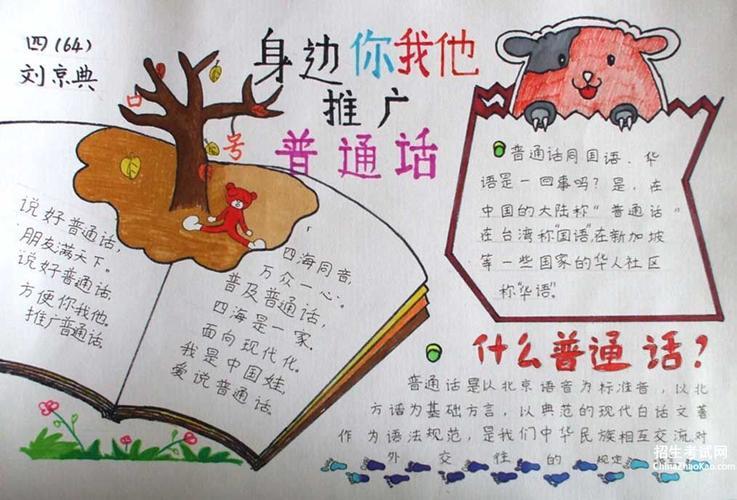 四(64)
刘京典
身边你我他
推广
普通话
口
号
说好普通话,
朋友满天下。
说好普通话,
方便你我他。
推广普通话。
四海同音,
万众一心。
普及普通话,
四海是一家。
面向现代化。
我是中国娃,
爱说普通话。
普通话同国语、华
语是一回事吗?是,在
中国的大陆称"普通话"
在台湾称"国语",在新加坡
等一些国家的华人社区
称"华语"。
什么普通话?
普通话是以北京语音为标准音,以北
方话为基础方言,以典范的现代白话文著
作为语法规范,是我们中华民族相互交流对
外交往的规定
招生考试网
ChinaZhaoKao.com